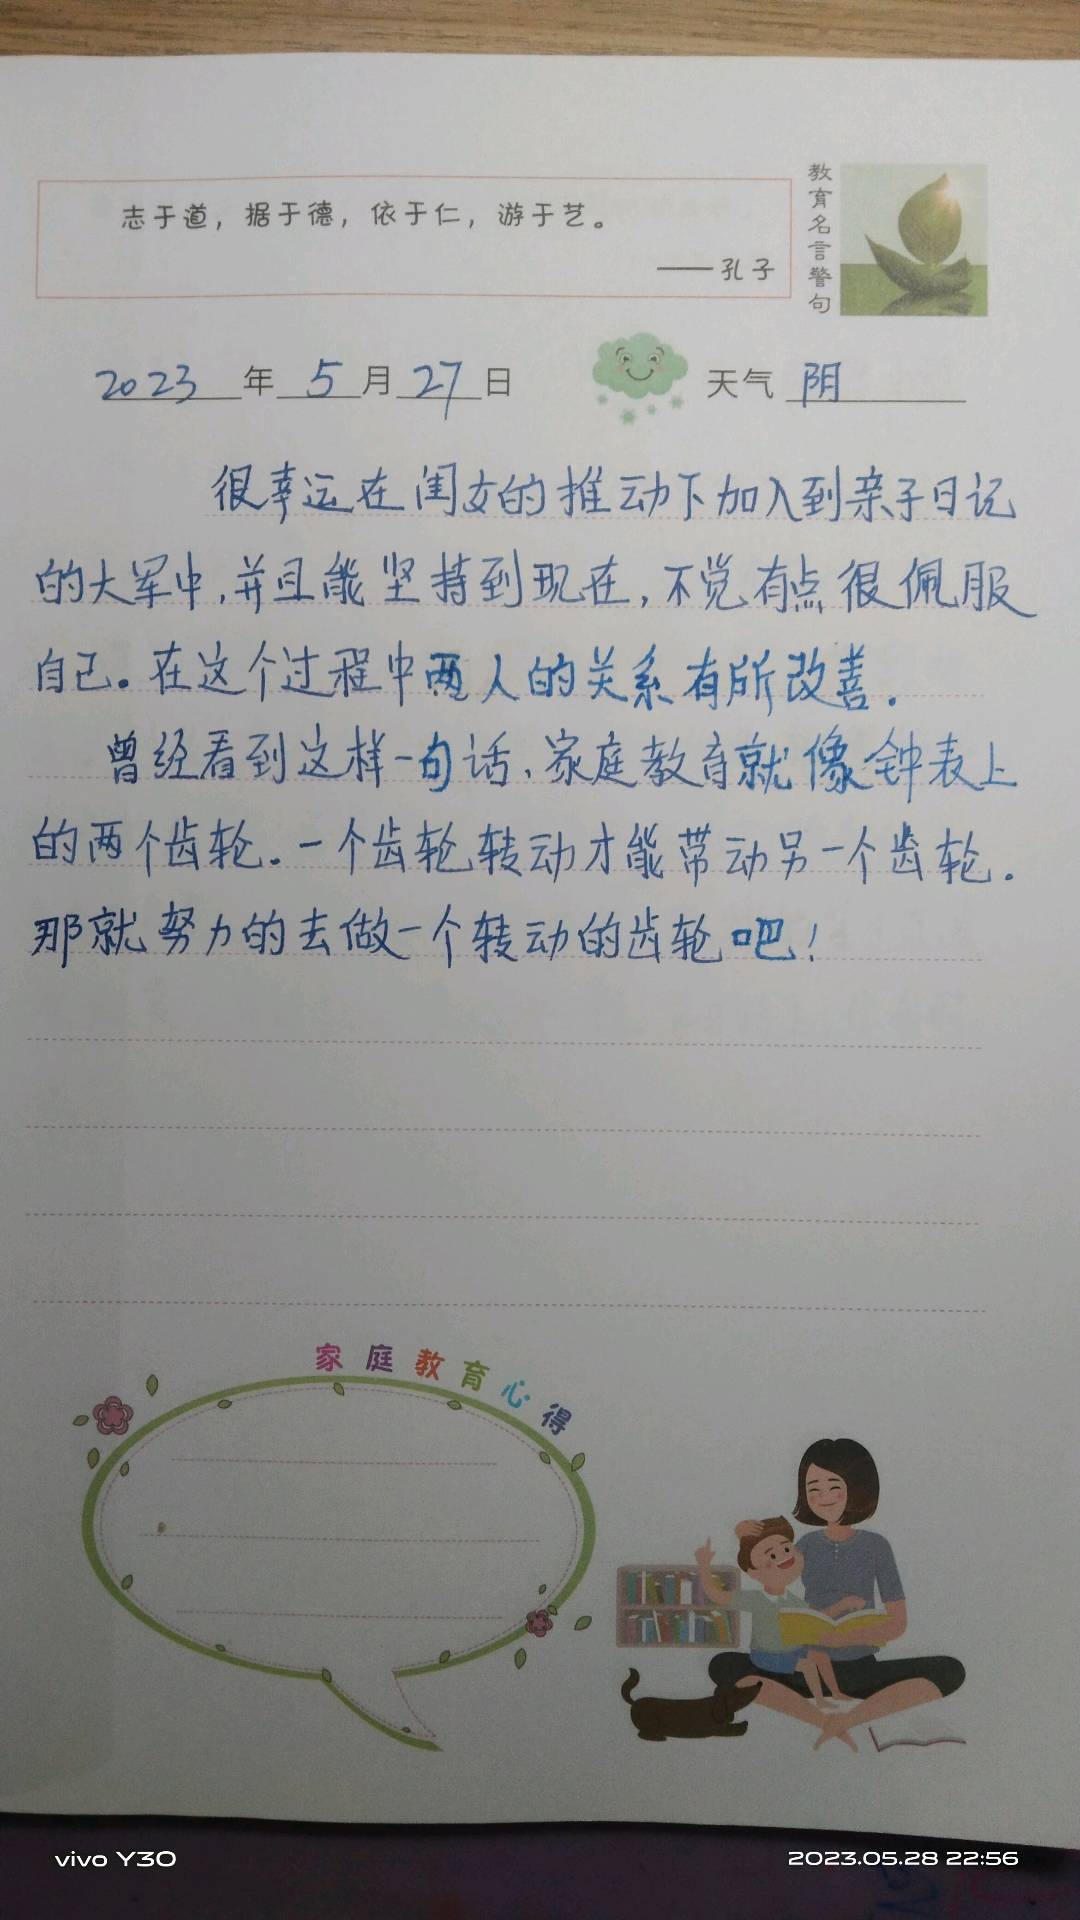 志于道，据于德，依于仁，游于艺。
——孔子
教育名言警句
2023年5月27日 天气 阴
很幸运在闺女的推动下加入到亲子日记
的大军中，并且能坚持到现在，不觉有点很佩服
自己。在这个过程中两人的关系有所改善.
曾经看到这样一句话、家庭教育就像钟表上
的两个齿轮.一个齿轮转动才能带动另一个齿轮.
那就努力的去做一个转动的齿轮吧！
家庭教育心得
vivo Y30
2023.05.28 22:56